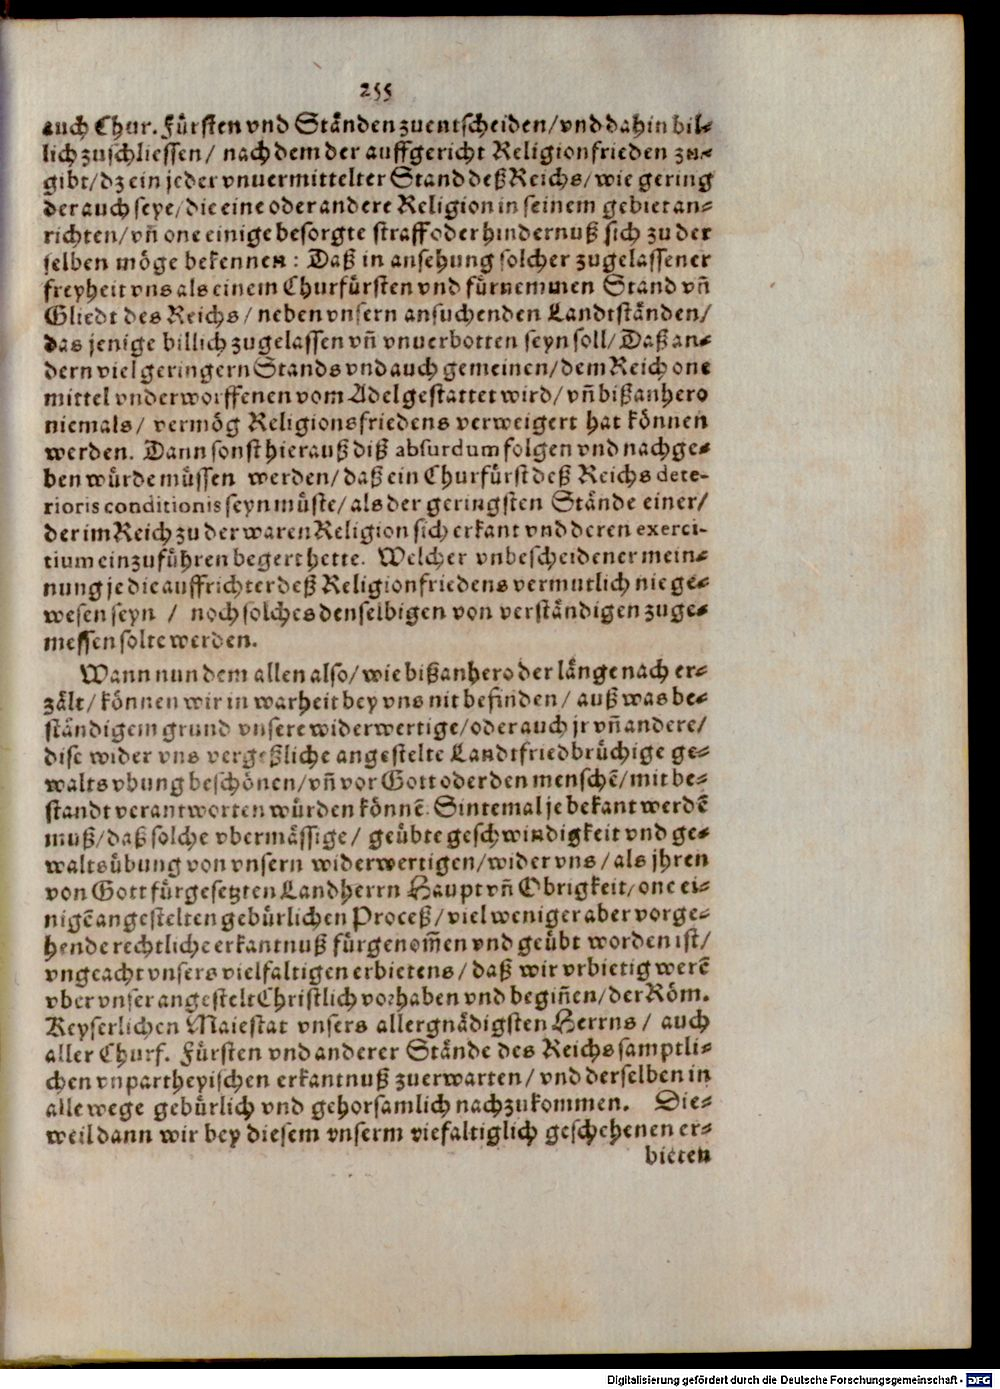 255
auch Chur. Fürsten vnd Ständen zuentscheiden/ vnd dahin bil⸗
lich zuschliessen/ nach dem der auffgericht Religionfrieden zu⸗
gibt/ dz ein jeder vnuermittelter Stand deß Reichs/ wie gering
der auch seye/ die eine oder andere Religion in seinem gebiet an⸗
richten/ vñ one einige besorgte straff oder hindernuß sich zu der
selben möge bekennen: Daß in ansehung solcher zugelassener
freyheit vns als einem Churfürsten vnd fürnemmen Stand vñ
Gliedt des Reichs/ neben vnsern ansuchenden Landtständen/
das jenige billich zugelassen vñ vnuerbotten seyn soll/ Daß an⸗
dern viel geringern Stands vnd auch gemeinen/ dem Reich one
mittel vnderworffenen vom Adel gestattet wird/ vñ bißanhero
niemals/ vermög Religionsfriedens verweigert hat können
werden. Dann sonst hierauß diß absurdum folgen vnd nachge⸗
ben würde müssen werden/ daß ein Churfürst deß Reichs dete-
rioris conditionis seyn müste/ als der geringsten Stände einer/
der im Reich zu der waren Religion sich erkant vnd deren exerci-
tium einzuführen begert hette. Welcher vnbescheidener mein⸗
nung je die auffrichter deß Religionfriedens vermutlich nie ge⸗
wesen seyn / noch solches denselbigen von verständigen zuge⸗
messen solte werden.
Wann nun dem allen also/ wie bißanhero der länge nach er⸗
zält/ können wir in warheit bey vns nit befinden/ auß was be⸗
ständigem grund vnsere widerwertige/ oder auch jr vñ andere/
dise wider vns vergeßliche angestelte Landtfriedbrüchige ge⸗
walts vbung beschönen/ vñ vor Gott oder den menschẽ/ mit be⸗
standt verantworten würden könnẽ. Sintemal je bekant werdẽ
muß/ daß solche vbermässige/ geübte geschwindigkeit vnd ge⸗
waltsübung von vnsern widerwertigen/ wider vns/ als jhren
von Gott fürgesetzten Landherrn Haupt vñ Obrigkeit/ one ei⸗
nigẽ angestelten gebürlichen Proceß/ viel weniger aber vorge⸗
hende rechtliche erkantnuß fürgenom̃en vnd geübt worden ist/
vngeacht vnsers vielfaltigen erbietens/ daß wir vrbietig werẽ
vber vnser angestelt Christlich vorhaben vnd begiñen/ der Röm.
Keyserlichen Maiestat vnsers allergnädigsten Herrns/ auch
aller Churf. Fürsten vnd anderer Stände des Reichs samptli⸗
chen vnpartheyischen erkantnuß zuerwarten/ vnd derselben in
alle wege gebürlich vnd gehorsamlich nachzukommen. Die⸗
weil dann wir bey diesem vnserm viefaltiglich geschehenen er⸗
bieten
Digitalisierung gefördert durch die Deutsche Forschungsgemeinschaft - DFG